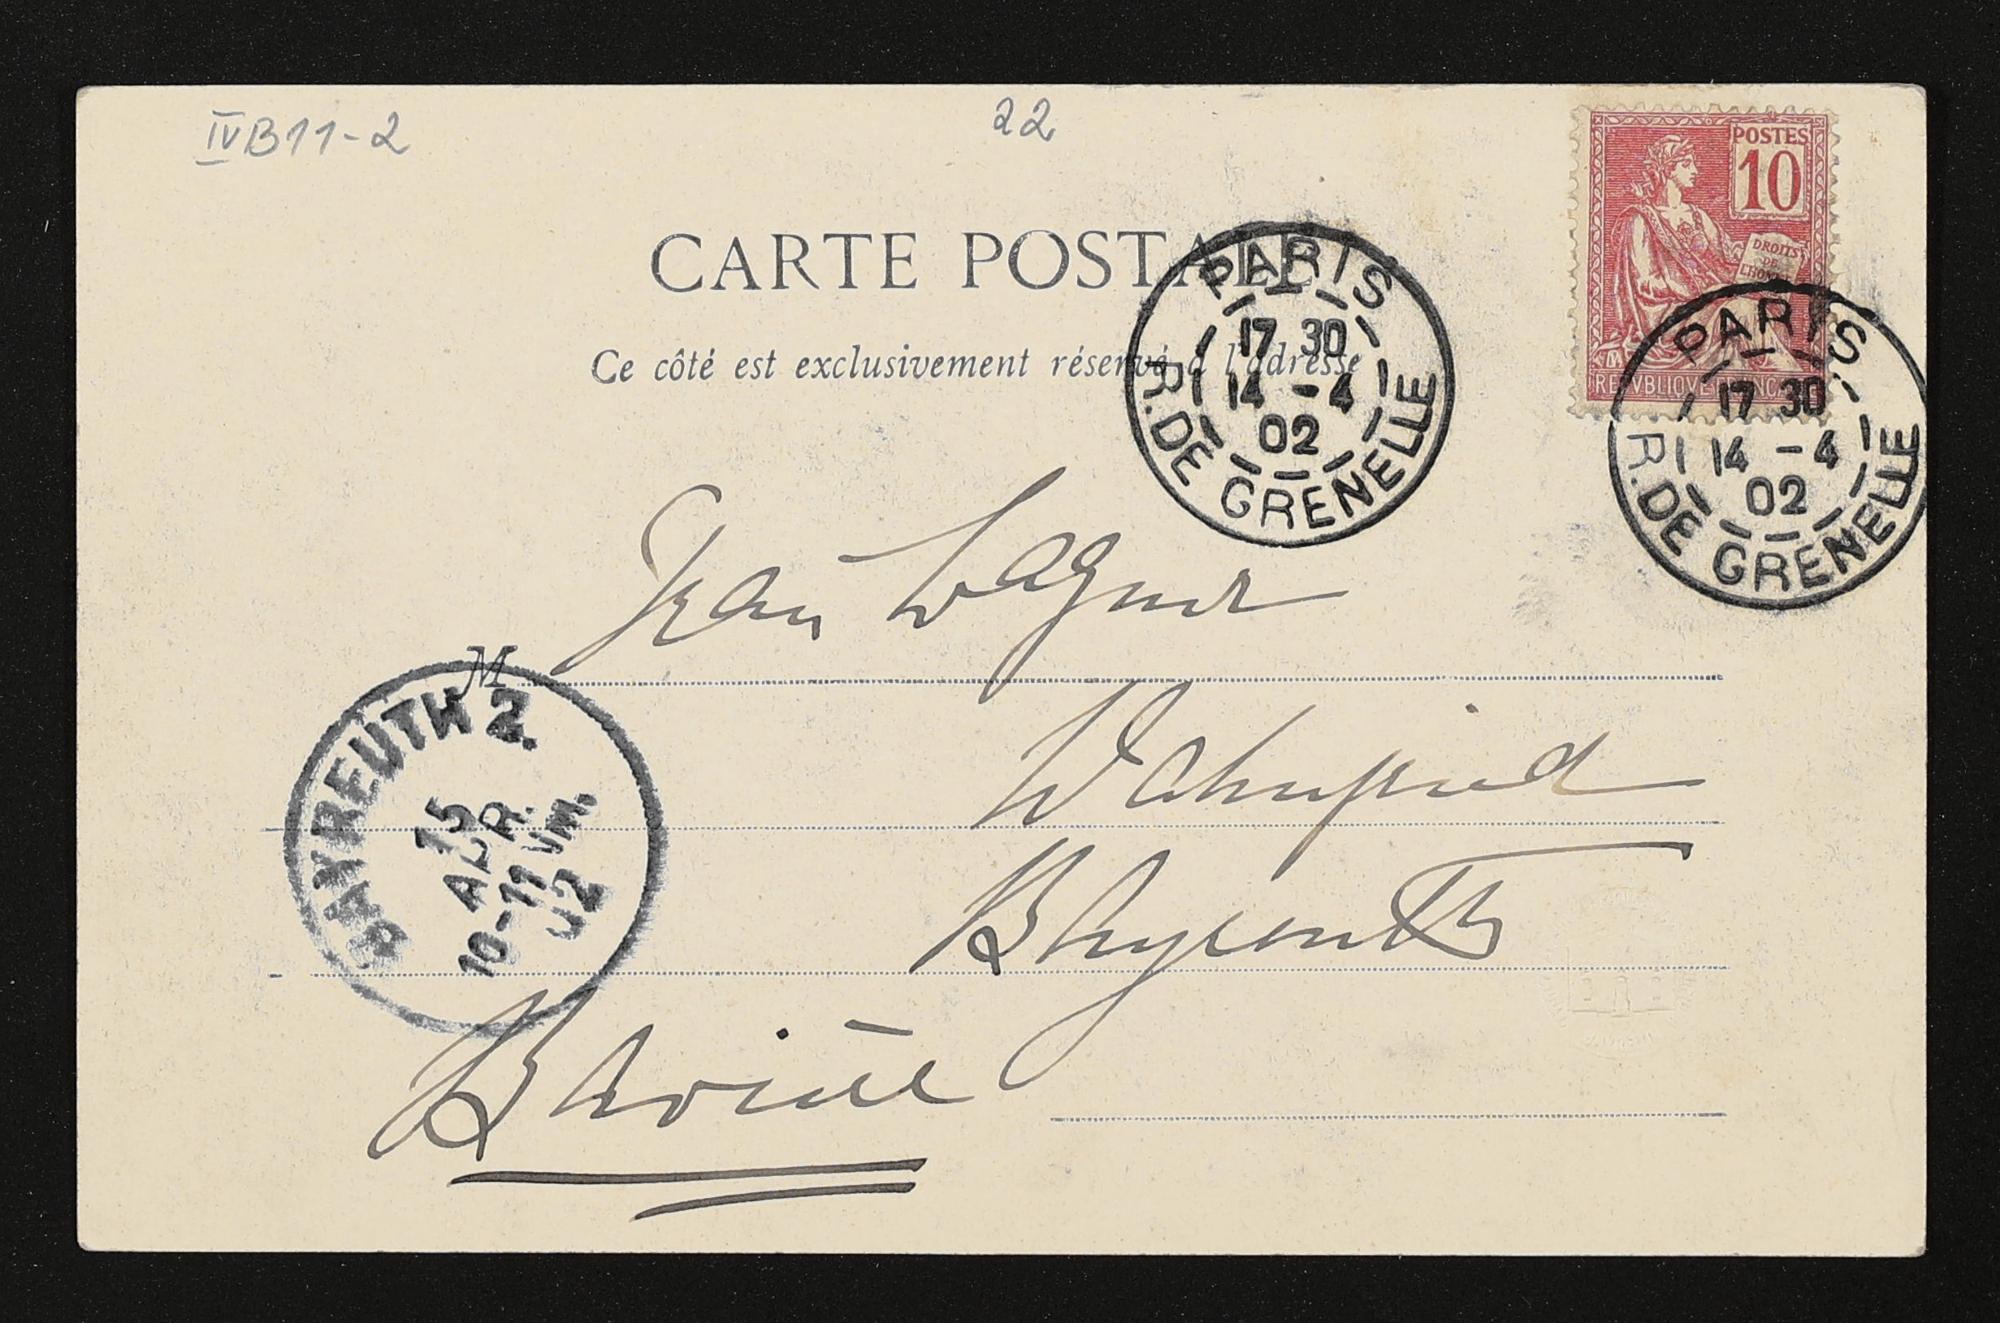 IVB11-2
22
POSTES
10
DROITS
DE
L'HOMME
REPVBLIQVE FRANCAISE
CARTE POSTALE
Ce côté est exclusivement réservé à l'adresse
PARIS
17 30
14 - 4
02
R. DE GRENELLE
PARIS
17 30
14 - 4
02
R. DE GRENELLE
M
Frau Wagner
Wahnfried
Bayreuth
Bavière
BAYREUTH 2.
15
APR.
10-11 Vm.
02